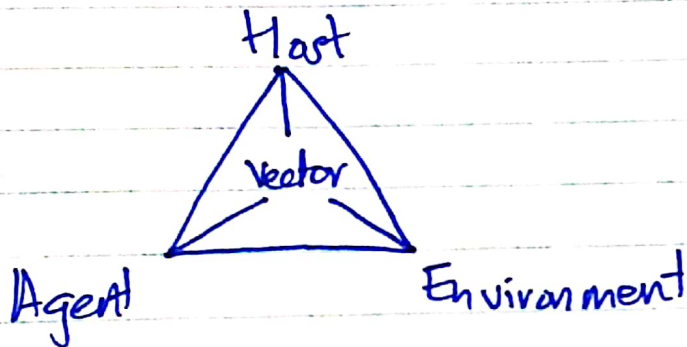 Host
Vector
Agent
Environment